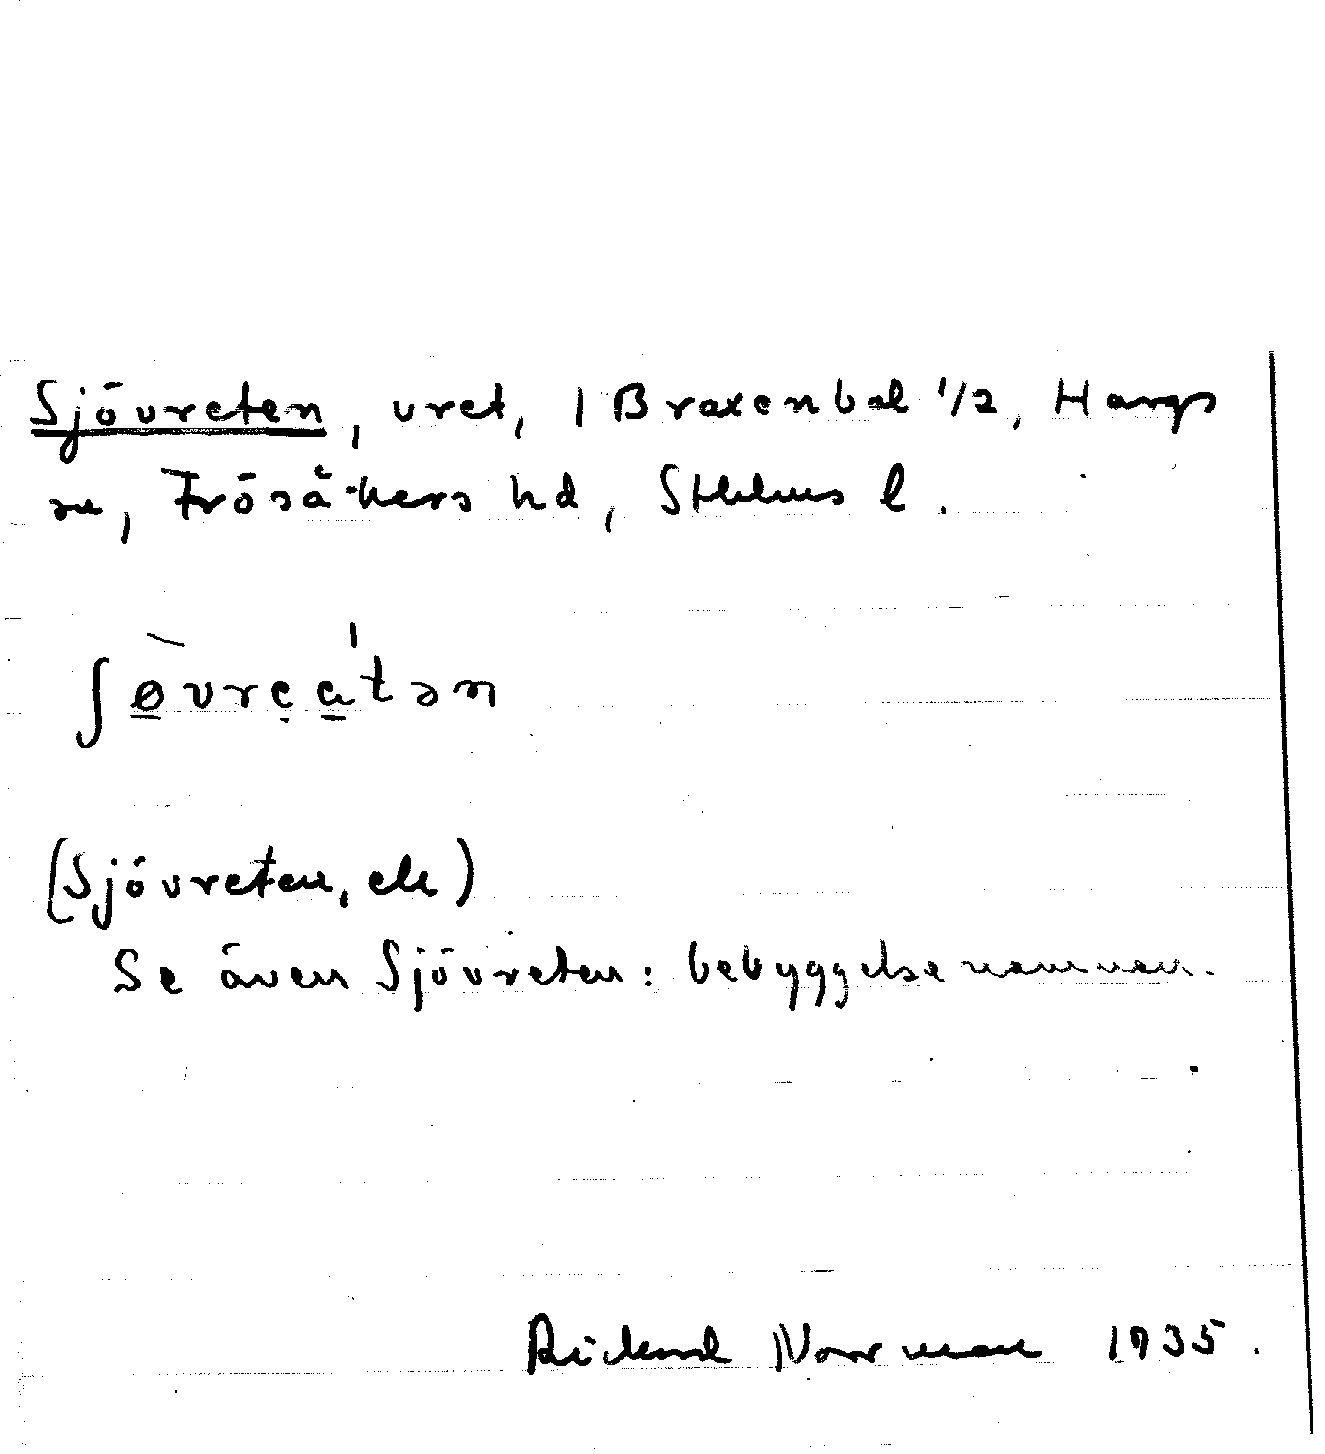 Sjövreten, vret, 1 Braxenbol 1/2, Hargs
sn, Frösåkers hd, Sthlms l.
ʃøvrea'tən
(Sjövreten, ek)
Se även Sjövreten: bebyggelsenamnen.
Rickard Norrman 1935.